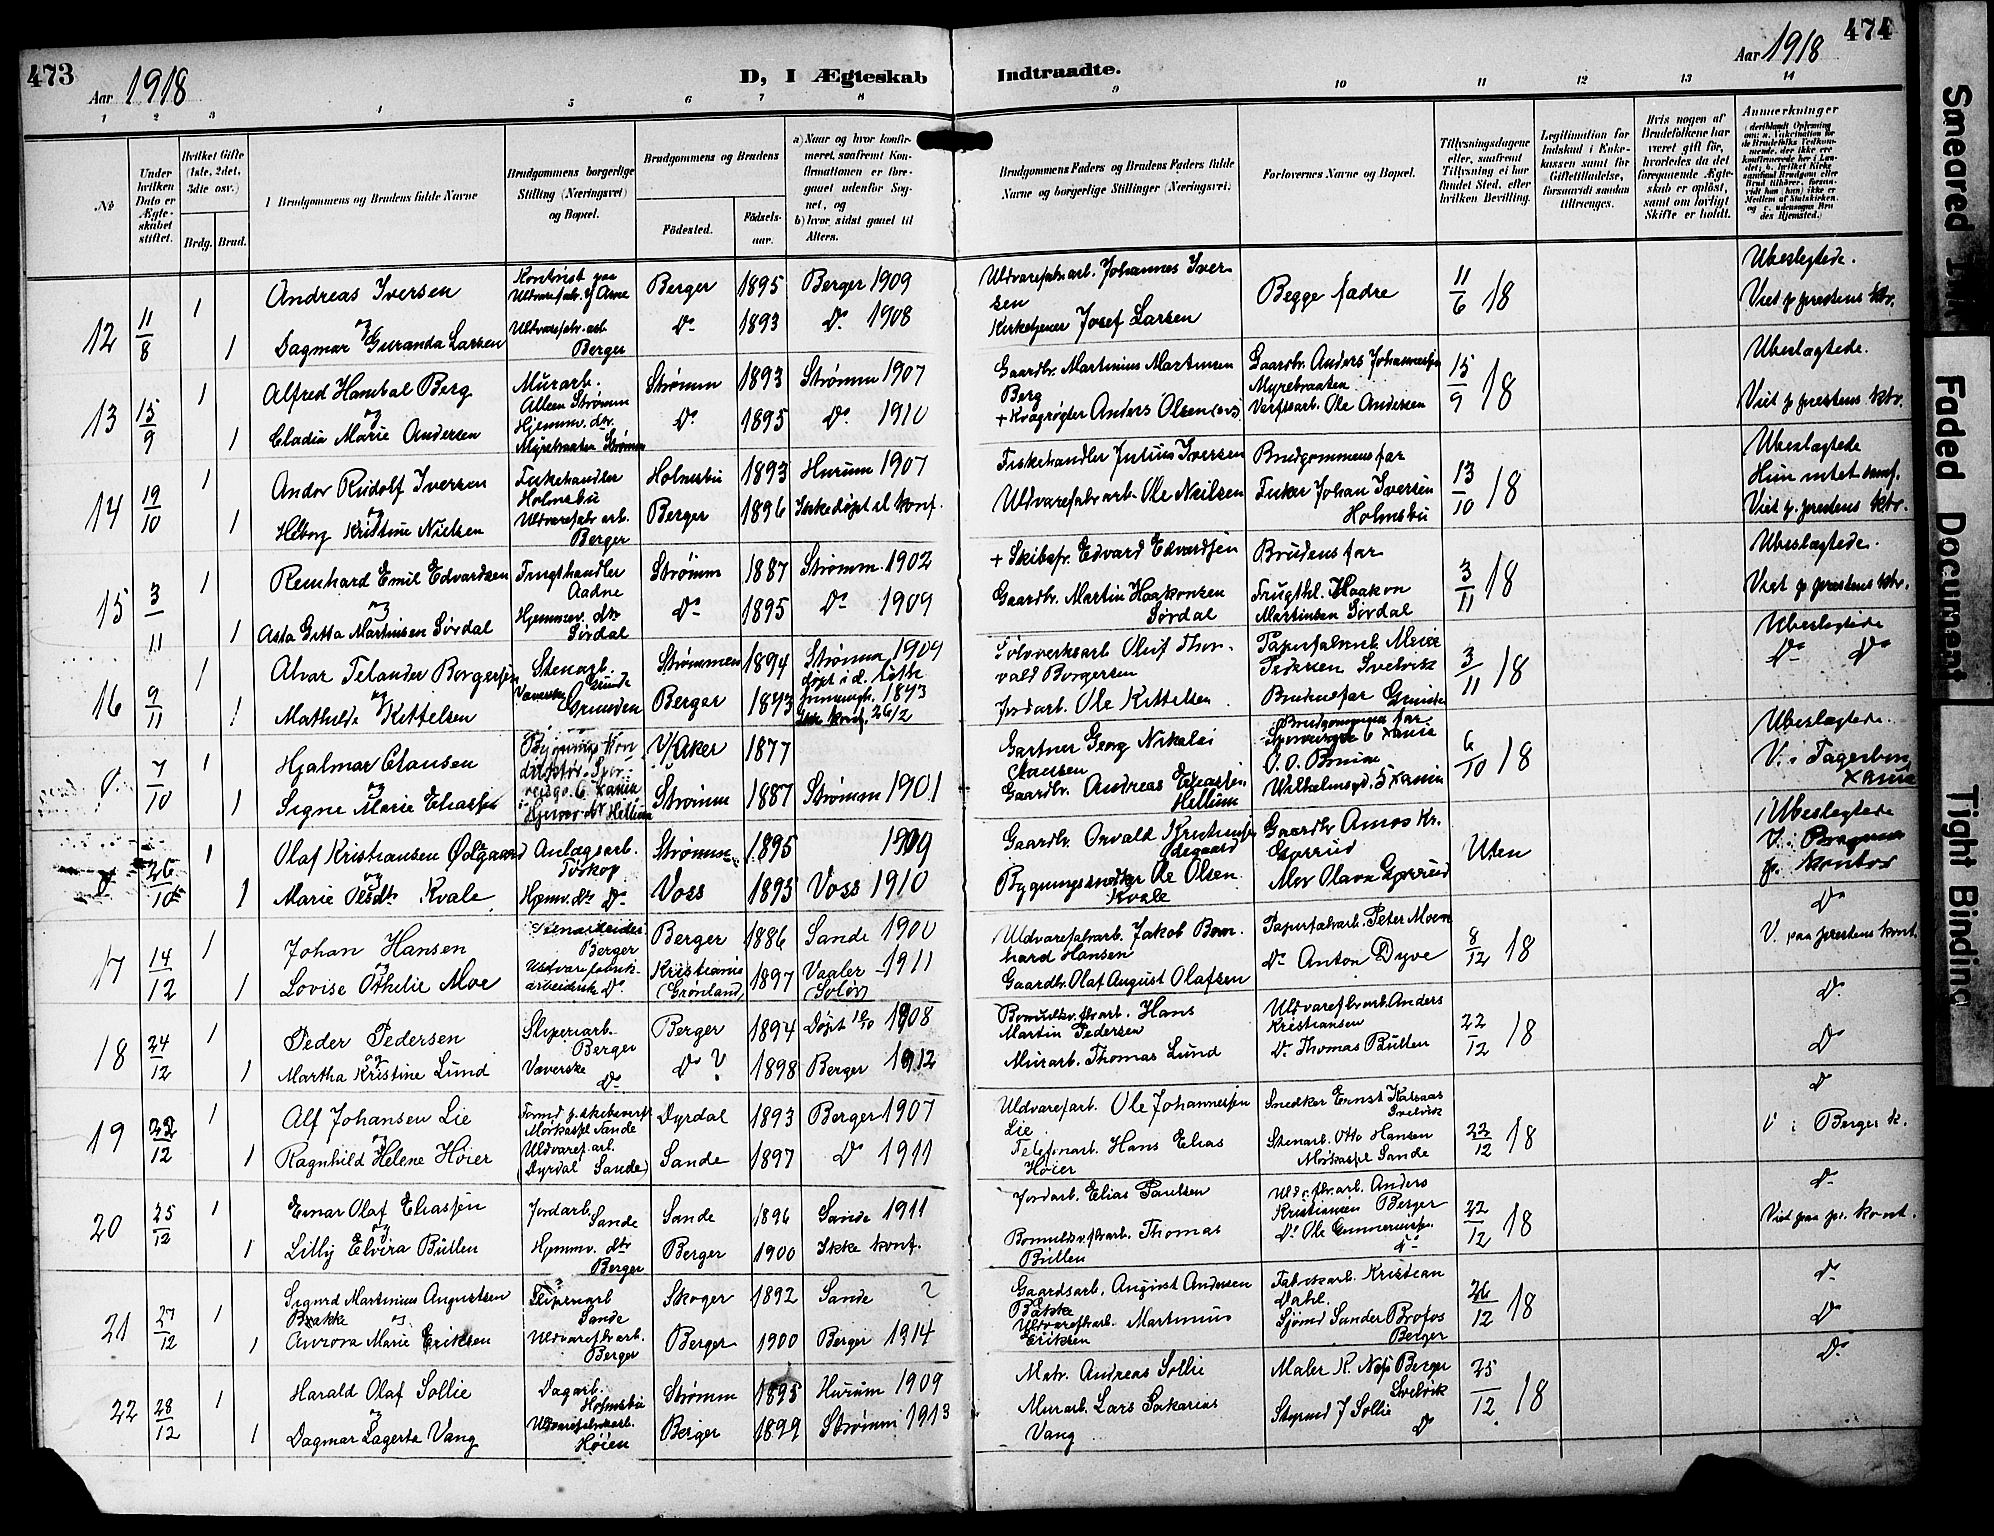 473
Aar 1918
D, I Ægteskab Indtraadte.
Aar 1918
474
1 2 3 4 5 6 7 8 9 10 11 12 13 14
No
Under hvilken Dato er Ægteskabet stiftet.
Hvilket Gifte (1ste, 2det, 3die osv.)
Brdg. Brud.
Brudgommens og Brudens fulde Navne
Brudgommens borgerlige Stilling (Næringsvei) og Bopæl.
Brudgommens og Brudens
Födested.
Födselsaar.
a) Naar og hvor konfirmeret, saafremt Konfirmationen er foregaaet udenfor Sognet, og
b) hvor sidst gaaet til Alters.
Brudgommens Faders og Brudens Faders fulde Navne og borgerlige Stillinger (Næringsvei.
Forlovernes Navne og Bopæl.
Tillysningsdagene eller, saafremt Tillysning ei har fundet Sted, efter hvilken Bevilling.
Legitimation for Indskud i Enkekassen samt for Giftetilladelse, forsaavidt saadan tiltrænges.
Hvis nogen af Brudefolkene har været gift før, hvorledes da det foregaaende Ægteskab er oplöst, samt om lovligt Skifte er holdt.
Anmerkninger
12 11/8 1 Andreas Iversen Berger 1895 Berger 1909 Uldvarefabrarb. Johannes Iversen Begge fædre 11/6 18 Ubeslegtede.
og
1 Dagmar Guranda Larsen Uldvarefabr.arb Berger Do 1893 Do 1908 Kirketjener Josef Larsen Viet p prestens ktr.
13 15/9 1 Alfred Hanibal Berg Murarb. Alleen Strømm Strømm 1893 Strømm 1907 Gaardbr. Martinius Martinsen Berg Gaardbr. Anders Johannessen Myrebraaten 15/9 18 Ubeslægtede.
og
1 Cladia Marie Andersen Hjemmv. dtr. Myrebraaten Strømm Do 1895 Do 1910 + Kvægrøgter Anders Olsen Verftsarb. Ole Andersen Viet p prestens ktr.
14 19/10 1 Andor Rudolf Iversen Fiskehandler Holmsbu Holmsbu 1893 Hurum 1907 Fiskehandler Julius Iversen Brudgommens far 13/10 18 Ubeslegtede
og
1 Kristine Nielsen Uldvarefabr arb. Berger Berger 1896 Ikke døpt el konf. Uldvarefabrarb. Ole Neilsen Fisker Johan Iversen Holmsbu Viet p. prestens ktr.
15 3/11 1 Reinhard Emil Edvardsen Frugthandler Aadne Strømm 1887 Strømm. 1902 + Skibsfr. Edvard Edvardsen Brudens far 3/11 18 Ubeslægtede.
og
1 Asta Gitta Martinsen Sørdal Hjemmev. dtr Sørdal Do 1895 Do 1909 Gaardbr. Martin Haakonsen Sørdal Frugthl. Haakon Martinsen Sørdal Viet p prestens ktr.
16 9/11 1 Alvar Telander Borgersen Stenarb. Grunde Strømmen 1894 Strømm 1909 Sølvverksarb Oluf Thorvald Borgersen Papirfabrarb. Pedersen Svelvik 3/11 18 Ubeslegtede
og
1 Mathilde Kittelsen Væverske Grunden Berger 1893 Ikke konf. 26/2 Jordarb. Ole Kittelsen Brudens far Grunde Do Do
7/10 1 Hjalmar Clausen V/Aker 1877 Gartner Georg Nikolai Clausen Brudgommens far 6/10 18 Ubeslægtede.
og
1 Signe Marie Eliassen Hjemv dtr Hellum Strømm 1887 Strømm 1901 Gaardbr. Andreas Eliassen Hellum V. i Fagerborg
26/10 1 Olaf Kristiansen Ødegaard Anlægsarb. Tørkop Strømm 1895 1909 Gaardbr. Osvald Kristiansen Ødegaard Gaardbr Amos Kr. Uten Ubeslegtede
og
1 Marie Olsdtr Kvale Hjemv. dtr Do Voss 1895 Voss 1910 Bygningssnedker Ole Olsen Kvale pr. kontor
17 14/12 1 Johan Hansen Stenarbeider Berger Berger 1886 Sande 1900 Uldvarefabrarb. Jakob Bernhard Hansen Papirfabrarb. Peter Moen 8/12 18 Do
og
1 Lovise Othelie Moe Uldvarefabrikarbeiderske Do Kristiania (Grønland) 1897 Vaaler 1911 Solør Gaardbr. Olaf August Olafsen Do Anton Dyve V. paa prestens kont.
18 24/12 1 Peder Pedersen Sliperiarb. Berger Berger 1894 Døpt 1908 Bomuldsv.fbr.arb. Hans Martin Pedersen Uldvarefbrarb Anders Kristiansen 22/12 18 Do
og
1 Martha Kristine Lund Væverske Do Do ? 1898 Berger 1912 Murarb. Thomas Lund Do Thomas Bullen Do
19 22/12 1 Alf Johansen Lie Dyrdal 1893 Berger 1907 Uldvarefarb. Ole Johannessen Lie Snedker Ernst Svelvik 22/12 18 Do
og
1 Ragnhild Helene Høier Uldvaref.arb. (Dyrdal Sande) Sande 1897 Do 1911 Telefonarb. Hans Elias Høier Stenarb. Otto Hansen Sande V i Berger k.
20 25/12 1 Einar Olaf Eliassen Jordarb. Sande Sande 1896 Sande 1911 Jordarb. Elias Paulsen Uldv.fbr.arb. Anders Kristiansen Berger 22/12 18 Do
og
1 Lilly Elvira Bullen Hjemmv. dtr Berger Berger 1900 Ikke konf. Bomuldsv.fbrarb. Thomas Bullen Do Ole Do Viet paa pr. kont.
21 27/12 1 Sigurd Martinius Augustsen Bakke Sliperiarb Sande Skoger 1892 Sande ? Gaardsarb. August Andersen Bakke Fabrikarb. Kristian Dahl. 26/12 18 Do
og
1 Aurora Marie Eriksen Uldvarefbrarb. Berger Berger 1900 Berger 1914 Uldvarefbrarb. Martinius Eriksen Sjømd Sander Brofos Berger Do
22 28/12 1 Harald Olaf Sollie Dagarb. Holmsbu Strømm 1895 Hurum 1909 Matr. Andreas Sollie Maler K. Næss Berger Svelvik 25/12 18 Do
og
1 Dagmar Lagerta Vang Uldvarefabrikarb. Høien Berger 1899 Strømm 1913 Murarb. Lars Sakarias Vang Styrmd J Sollie Do
Smeared Ink
Faded Document
Tight Binding